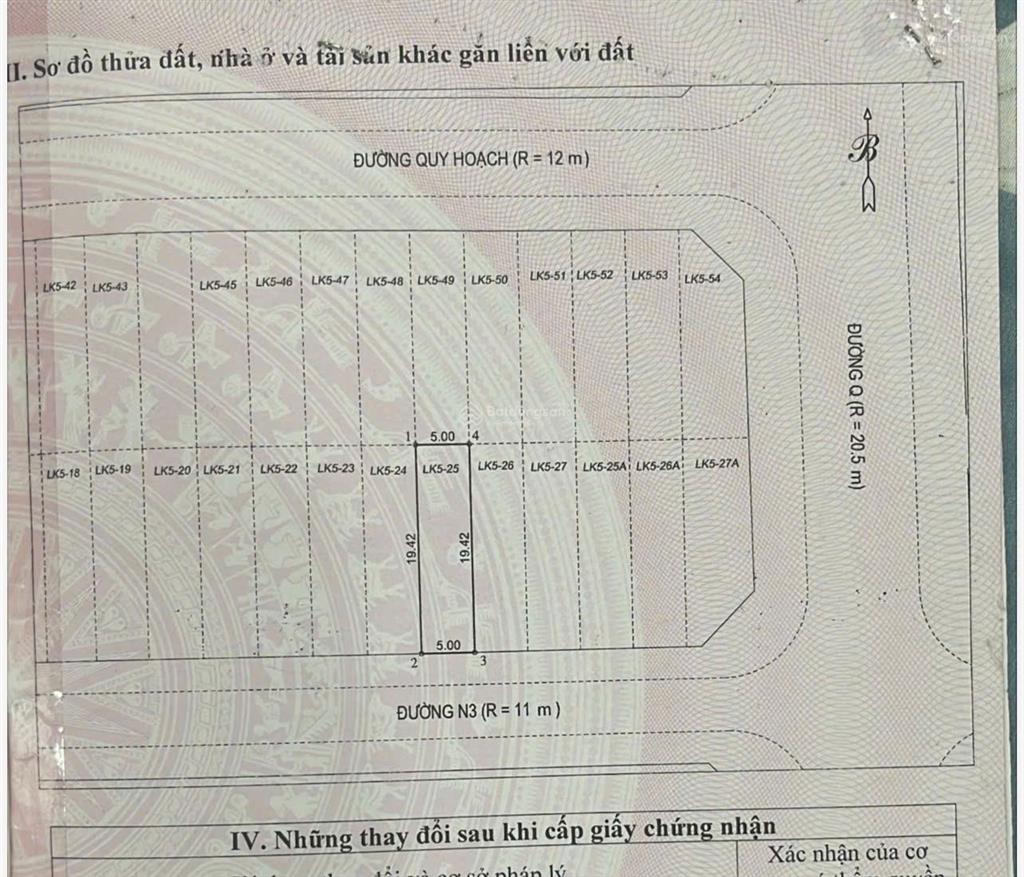 II. Sơ đồ thửa đất, nhà ở và tài sản khác gắn liền với đất
ĐƯỜNG QUY HOẠCH (R = 12 m)
B
LK5-42 LK5-43 LK5-45 LK5-46 LK5-47 LK5-48 LK5-49 LK5-50 LK5-51 LK5-52 LK5-53 LK5-54
ĐƯỜNG Q (R = 20.5 m)
Batdongsan
1 5.00 4
LK5-18 LK5-19 LK5-20 LK5-21 LK5-22 LK5-23 LK5-24 LK5-25 LK5-26 LK5-27 LK5-25A LK5-26A LK5-27A
19.42 19.42
5.00
2 3
ĐƯỜNG N3 (R = 11 m)
IV. Những thay đổi sau khi cấp giấy chứng nhận
Xác nhận của cơ
đổi và cơ sở pháp lý